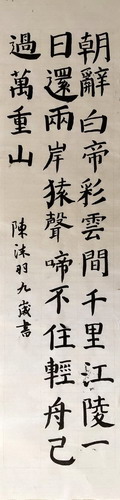 朝辭白帝彩雲間千里江陵一
日還兩岸猿聲啼不住輕舟已
過萬重山
陳沐羽九歲書